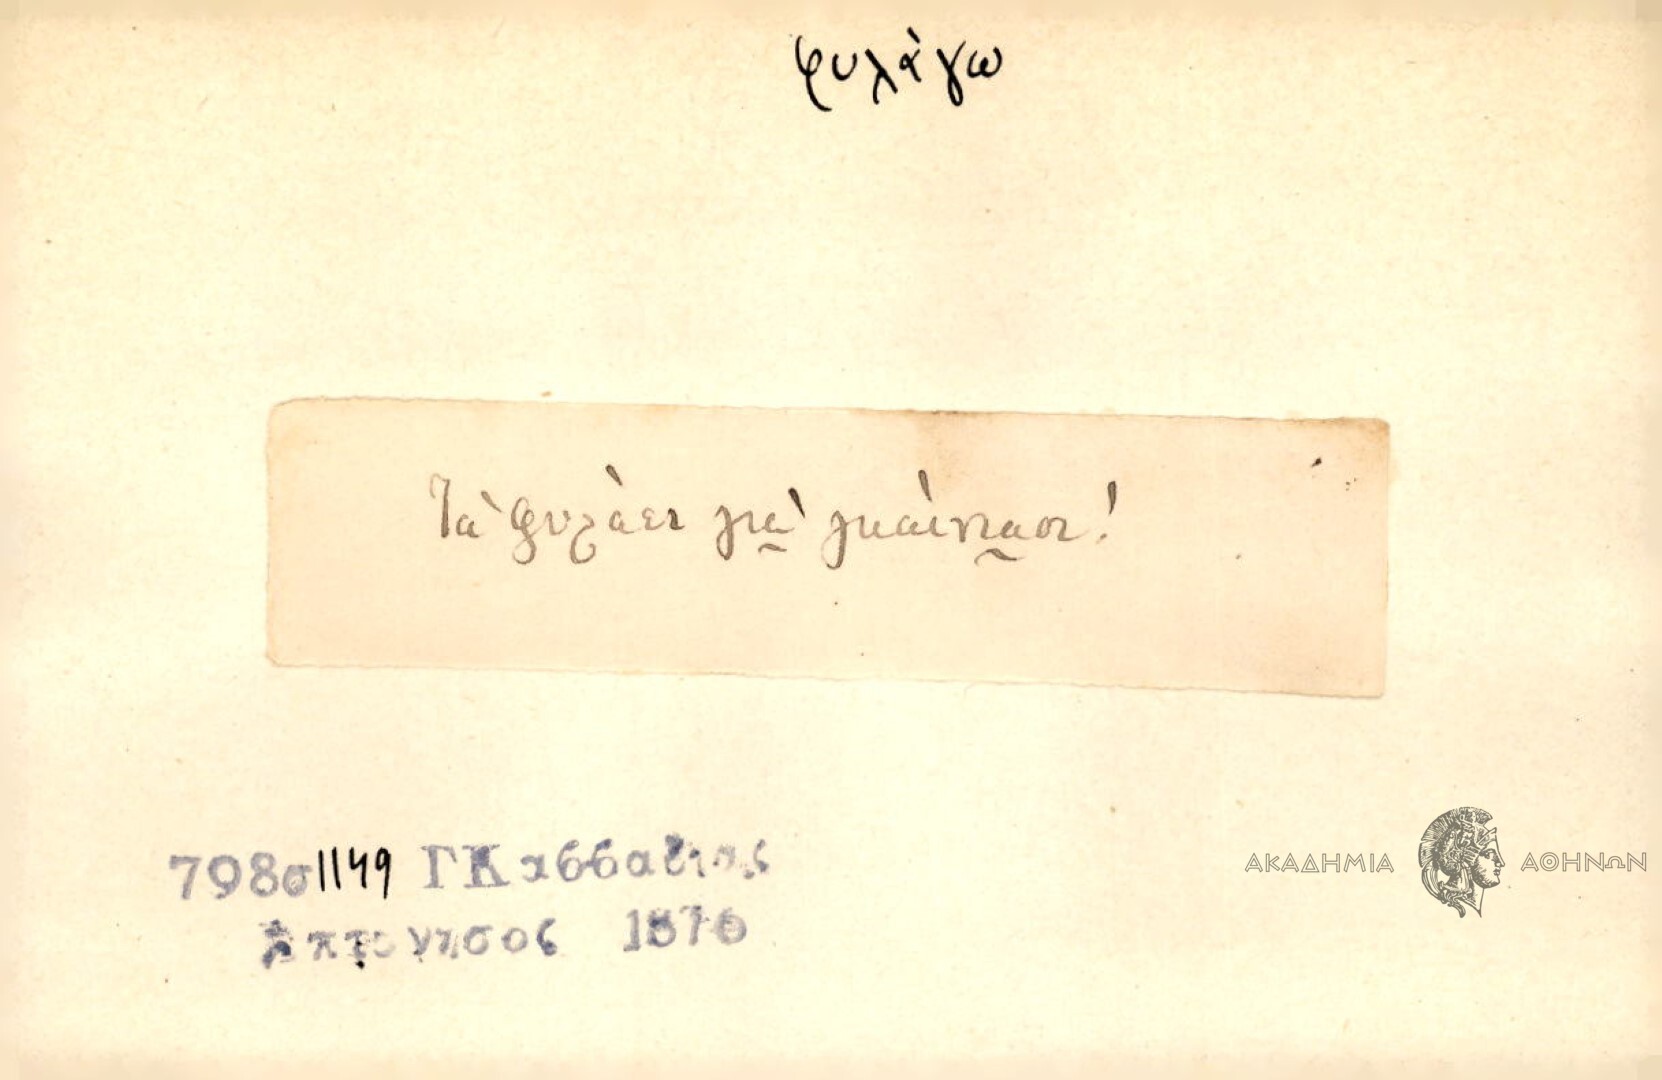 φυλάγω
Τὰ φυλάει γιὰ γκαίνιασι!
798σ 1149 ΓΚαββαδίας
Ἑπτάνησος 1876
ΑΚΑΔΗΜΙΑ ΑΘΗΝΩΝ